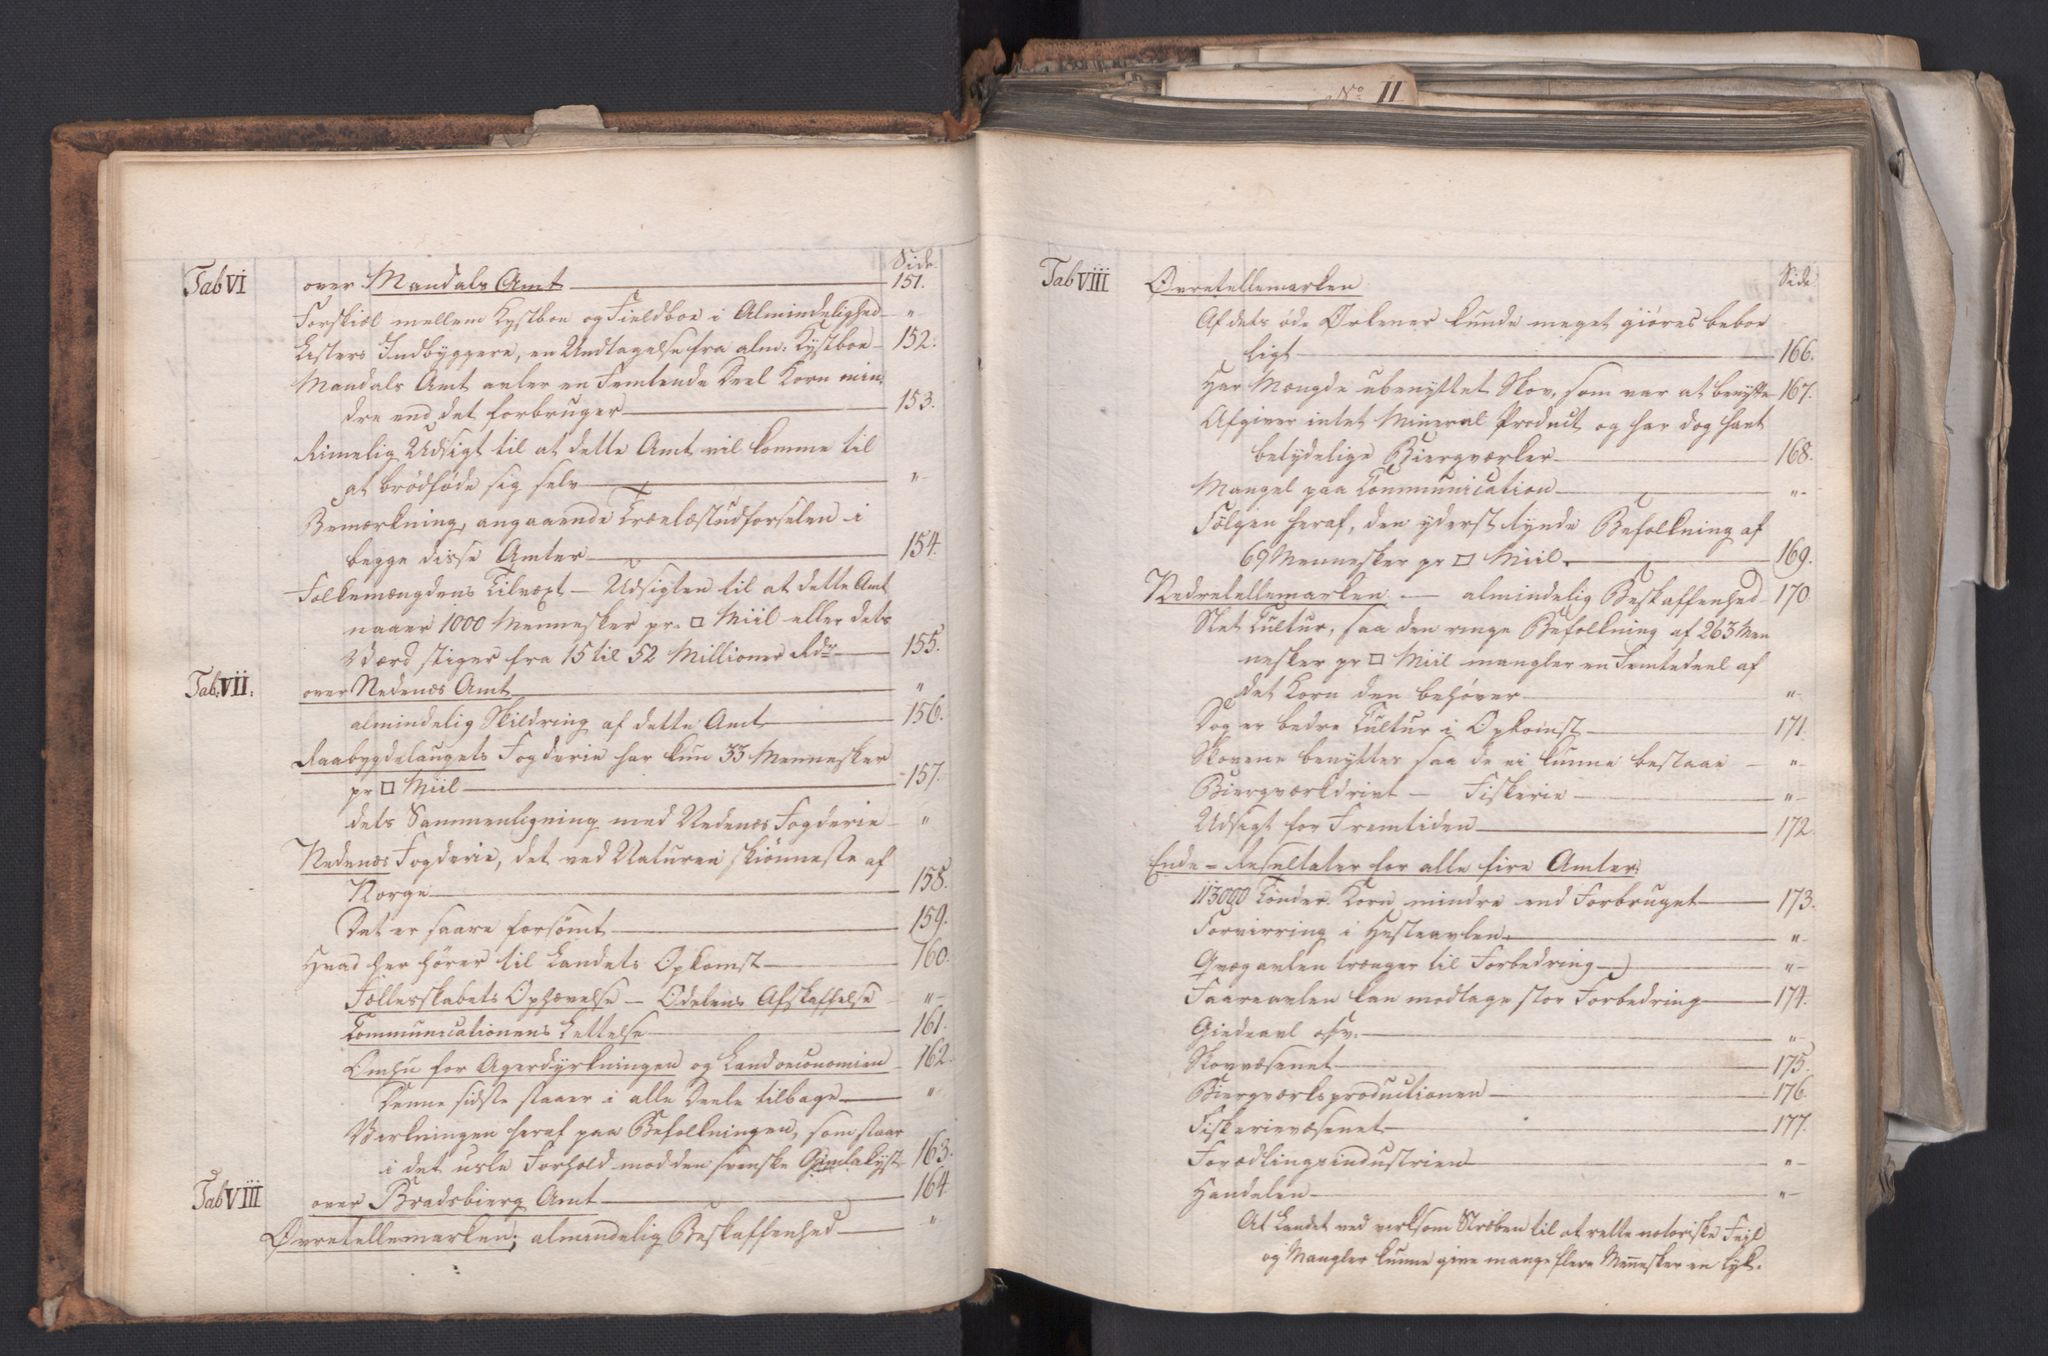 No II
Side.
Tab VI over Mandals Amt 151.
Forskiæl mellem Kystboe og Fieldboe i Almindelighed "
Listers Indbyggere, en Undtagelse fra alm: Kystboe 152.
Mandals Amt avler en Femtende Deel Korn min
dre end det forbruger 153.
Rimelig Udsigt til at dette Amt vil komme til
at brødføde sig selv "
Bemærkning, angaaende Trælastudførselen i
begge disse Amter 154.
Folkemængdens Tilvæxt – Udsigten til at dette Amt
naaer 1000 Mennesker pr. □ Miil eller dets
Værd stiger fra 15 til 52 Millioner Rdr 155.
Tab. VII: over Nedenæs Amt "
almindelig Skildring af dette Amt 156.
Raabygdelaugets Fogderie har kun 33 Mennesker
pr □ Miil 157.
dets Sammenligning med Nedenæs Fogderie "
Nedenæs Fogderie, det ved Naturen skiønneste af
Norge 158.
Det er saare forsømt 159.
Hvad her hører til Landets Opkomst 160.
Fællesskabets Ophævelse – Odelens Afskaffelse "
Communicationens Lettelse 161.
Omhu for Agerdyrkningen og Landoeconomien 162.
Denne sidste staaer i alle Deele tilbage "
Virkningen heraf paa Befolkningen, som staar
i det usle Forhold mod den svenske kyst 163.
Tab VIII over Bradsbierg Amt 164
Øvretellemarken; almindelig Beskaffenhed "
Side
Tab VIII Øvretellemarken
Af dets øde Ørkener kunde meget giøres beboe
ligt 166.
Har Mængde ubenyttet Skov, som var at benytte 167.
Afgiver intet Mineral Product og har dog havt
betydelige Biergværker 168.
Mangel paa Communication "
Følgen heraf, den yderst tynde Befolkning af
69 Mennesker pr □ Miil. 169.
Nedretellemarken – almindelig Beskaffenhed 170.
Slet Cultur, saa den ringe Befolkning af 263 Men
nesker pr □ Miil mangler en Femtedeel af
det Korn den behøver "
Dog er bedre Cultur i Opkomst 171.
Skovene benyttes saa de ei kunne bestaae "
Biergværkdrivt – Fiskerie "
Udsigt for Fremtiden 172.
Ende-Resultater for alle fire Amter:
113090 Tønder Korn mindre end Forbruget 173.
Forvirring i Hesteavlen. "
Qvægavlen trænger til Forbedring "
Faareavlen kan modtage stor Forbedring 174.
Giedeavl osv. "
Skovvæsenet 175.
Biergværksproductionen 176.
Fiskerievæsenet 177.
Forædlingsindustrien "
Handelen "
At Landet ved virksom Stræben til at rette notoriske Feil
og Mangler kunne give mange flere Mennesker en lyk-